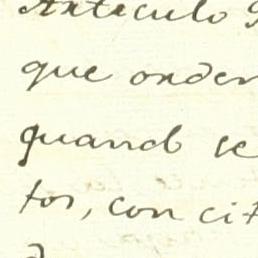 Artículo
que orden
quando se
tos, con cit